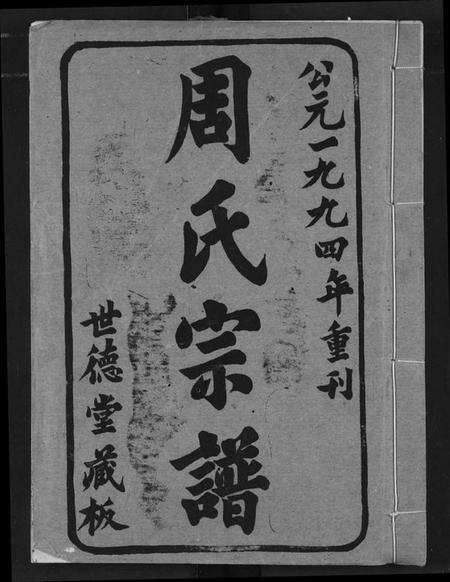 公元一九九四年重刊
周氏宗譜
世德堂藏板